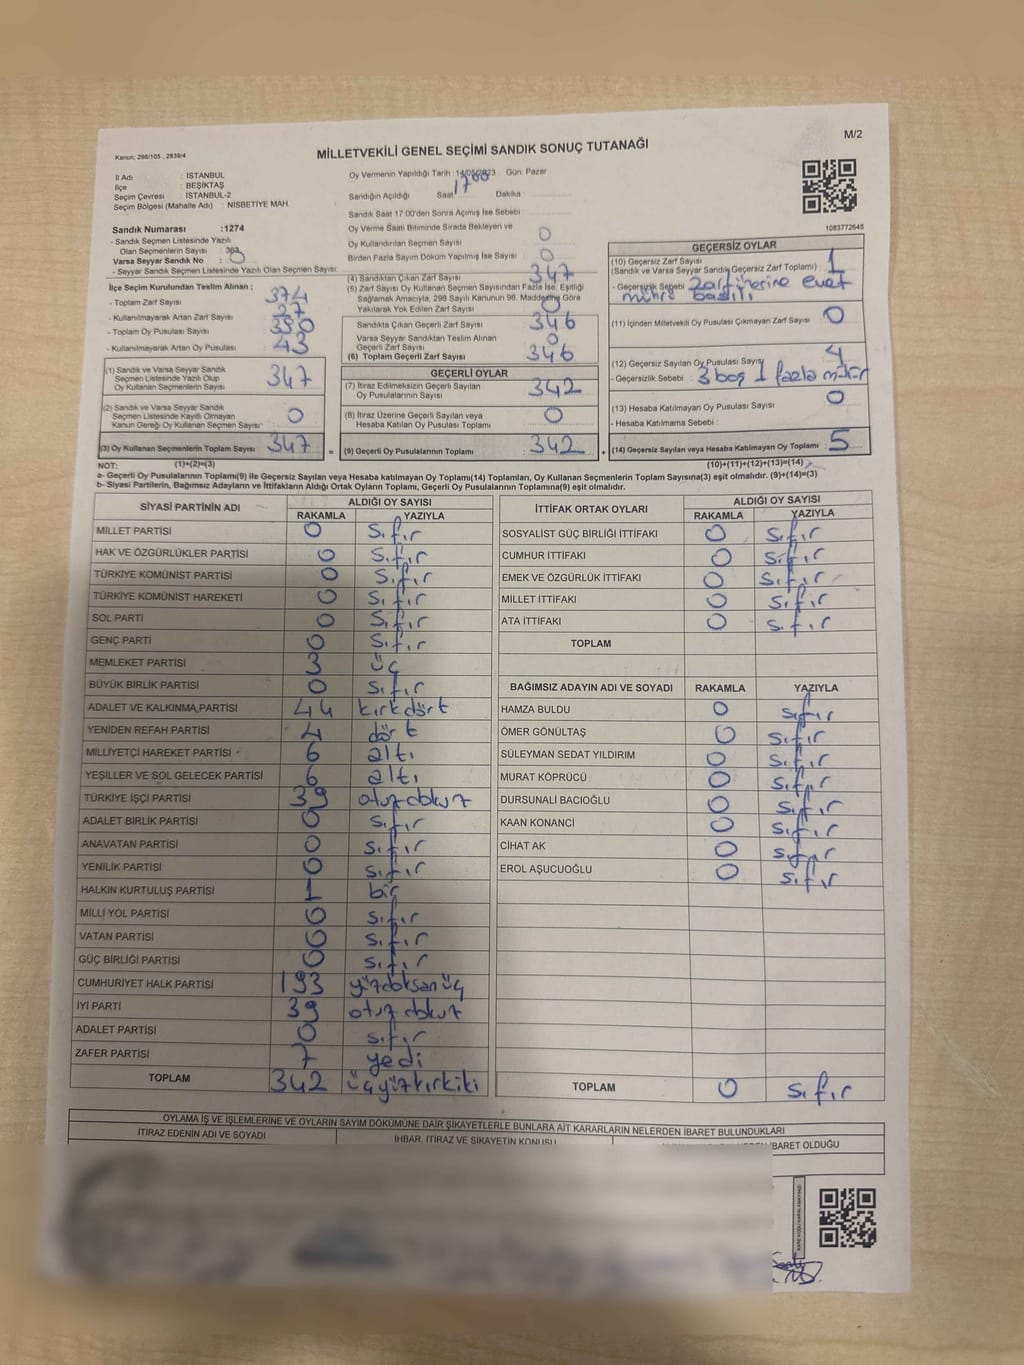 M/2
Kanun: 298/105 , 2839/4
MİLLETVEKİLİ GENEL SEÇİMİ SANDIK SONUÇ TUTANAĞI
İl Adı : İSTANBUL
İlçe : BEŞİKTAŞ
Seçim Çevresi : İSTANBUL-2
Seçim Bölgesi (Mahalle Adı) : NİSBETİYE MAH.
Sandık Numarası :1274
- Sandık Seçmen Listesinde Yazılı
Olan Seçmenlerin Sayısı :
Varsa Seyyar Sandık No :
- Seyyar Sandık Seçmen Listesinde Yazılı Olan Seçmen Sayısı:
İlçe Seçim Kurulundan Teslim Alınan ;
- Toplam Zarf Sayısı : 374
- Kullanılmayarak Artan Zarf Sayısı : 27
- Toplam Oy Pusulası Sayısı :
- Kullanılmayarak Artan Oy Pusulası : 43
(1) Sandık ve Varsa Seyyar Sandık
Seçmen Listesinde Yazılı Olup
Oy Kullanan Seçmenlerin Sayısı : 347
(2) Sandık ve Varsa Seyyar Sandık
Seçmen Listesinde Kayıtlı Olmayan
Kanun Gereği Oy Kullanan Seçmen Sayısı : 0
(3) Oy Kullanan Seçmenlerin Toplam Sayısı : 347
Oy Vermenin Yapıldığı Tarih :14/05/2023 Gün: Pazar
Sandığın Açıldığı Saat 17 00 Dakika :
Sandık Saat 17:00'den Sonra Açılmış İse Sebebi :
Oy Verme Saati Bitiminde Sırada Bekleyen ve
Oy Kullandırılan Seçmen Sayısı : 0
Birden Fazla Sayım Döküm Yapılmış İse Sayısı : 0
(4) Sandıktan Çıkan Zarf Sayısı : 347
(5) Zarf Sayısı Oy Kullanan Seçmen Sayısından Fazla İse, Eşitliği
Sağlamak Amacıyla, 298 Sayılı Kanunun 98. Maddesine Göre
Yakılarak Yok Edilen Zarf Sayısı : 0
Sandıkta Çıkan Geçerli Zarf Sayısı : 346
Varsa Seyyar Sandıktan Teslim Alınan
Geçerli Zarf Sayısı : 0
(6) Toplam Geçerli Zarf Sayısı : 346
GEÇERLİ OYLAR
(7) İtiraz Edilmeksizin Geçerli Sayılan
Oy Pusulasının Sayısı : 342
(8) İtiraz Üzerine Geçerli Sayılan veya
Hesaba Katılan Oy Pusulası Toplamı : 0
= (9) Geçerli Oy Pusulalarının Toplamı : 342 +
1083772648
GEÇERSİZ OYLAR
(10) Geçersiz Zarf Sayısı : 1
(Sandık ve Varsa Seyyar Sandık Geçersiz Zarf Toplamı)
- Geçersizlik Sebebi : zarf üzerine evet
mührü basılı
(11) İçinden Milletvekili Oy Pusulası Çıkmayan Zarf Sayısı : 0
(12) Geçersiz Sayılan Oy Pusulası Sayısı : 4
- Geçersizlik Sebebi : 3 boş 1 fazla mühür
(13) Hesaba Katılmayan Oy Pusulası Sayısı : 0
- Hesaba Katılmama Sebebi :
(14) Geçersiz Sayılan veya Hesaba Katılmayan Oy Toplamı : 5
NOT: (1)+(2)=(3) (10)+(11)+(12)+(13)=(14)
a- Geçerli Oy Pusulalarının Toplamı(9) ile Geçersiz Sayılan veya Hesaba katılmayan Oy Toplamı(14) Toplamları, Oy Kullanan Seçmenlerin Toplam Sayısına(3) eşit olmalıdır. (9)+(14)=(3)
b- Siyasi Partilerin, Bağımsız Adayların ve İttifakların Aldığı Ortak Oyların Toplamı, Geçerli Oy Pusulalarının Toplamına(9) eşit olmalıdır.
SİYASİ PARTİNİN ADI ALDIĞI OY SAYISI
RAKAMLA YAZIYLA
MİLLET PARTİSİ 0 sıfır
HAK VE ÖZGÜRLÜKLER PARTİSİ 0 sıfır
TÜRKİYE KOMÜNİST PARTİSİ 0 sıfır
TÜRKİYE KOMÜNİST HAREKETİ 0 sıfır
SOL PARTİ 0 sıfır
GENÇ PARTİ 0 sıfır
MEMLEKET PARTİSİ 3 üç
BÜYÜK BİRLİK PARTİSİ 0 sıfır
ADALET VE KALKINMA PARTİSİ 44 kırkdört
YENİDEN REFAH PARTİSİ 4 dört
MİLLİYETÇİ HAREKET PARTİSİ 6 altı
YEŞİLLER VE SOL GELECEK PARTİSİ 6 altı
TÜRKİYE İŞÇİ PARTİSİ 39 otuzdokuz
ADALET BİRLİK PARTİSİ 0 sıfır
ANAVATAN PARTİSİ 0 sıfır
YENİLİK PARTİSİ 0 sıfır
HALKIN KURTULUŞ PARTİSİ 1 bir
MİLLİ YOL PARTİSİ 0 sıfır
VATAN PARTİSİ 0 sıfır
GÜÇ BİRLİĞİ PARTİSİ 0 sıfır
CUMHURİYET HALK PARTİSİ 193 yüzdoksanüç
İYİ PARTİ 39 otuzdokuz
ADALET PARTİSİ 0 sıfır
ZAFER PARTİSİ 7 yedi
TOPLAM 342 üçyüzkırkiki
İTTİFAK ORTAK OYLARI ALDIĞI OY SAYISI
RAKAMLA YAZIYLA
SOSYALİST GÜÇ BİRLİĞİ İTTİFAKI 0 sıfır
CUMHUR İTTİFAKI 0 sıfır
EMEK VE ÖZGÜRLÜK İTTİFAKI 0 sıfır
MİLLET İTTİFAKI 0 sıfır
ATA İTTİFAKI 0 sıfır
TOPLAM
BAĞIMSIZ ADAYIN ADI VE SOYADI RAKAMLA YAZIYLA
HAMZA BULDU 0 sıfır
ÖMER GÖNÜLTAŞ 0 sıfır
SÜLEYMAN SEDAT YILDIRIM 0 sıfır
MURAT KÖPRÜCÜ 0 sıfır
DURSUNALİ BACIOĞLU 0 sıfır
KAAN KONANCİ 0 sıfır
CİHAT AK 0 sıfır
EROL AŞUCUOĞLU 0 sıfır
TOPLAM 0 sıfır
OYLAMA İŞ VE İŞLEMLERİNE VE OYLARIN SAYIM DÖKÜMÜNE DAİR ŞİKAYETLERLE BUNLARA AİT KARARLARIN NELERDEN İBARET BULUNDUKLARI
İTİRAZ EDENİN ADI VE SOYADI İHBAR, İTİRAZ VE ŞİKAYETİN KONUSU İBARET OLDUĞU